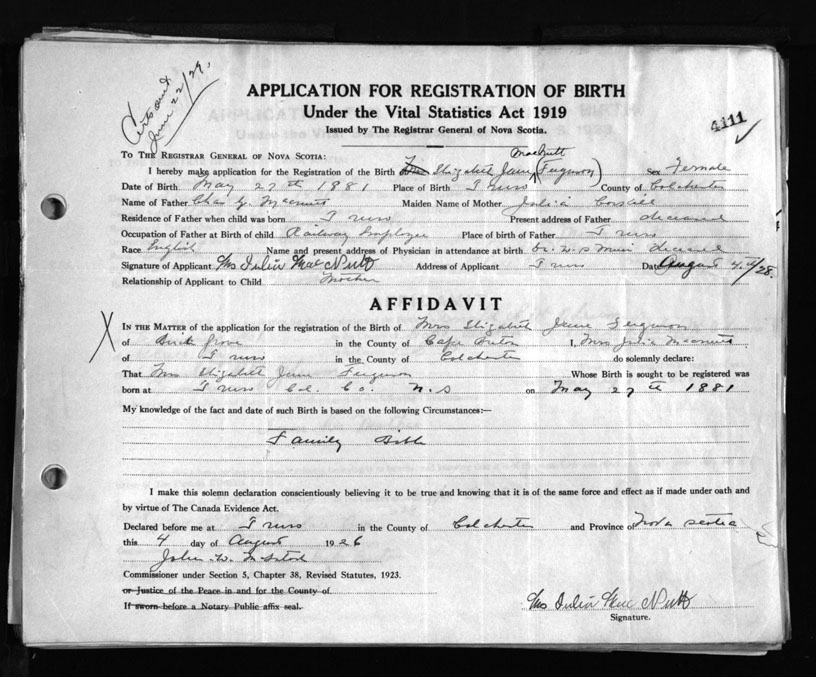 June 22/29
APPLICATION FOR REGISTRATION OF BIRTH
Under the Vital Statistics Act 1919
Issued by The Registrar General of Nova Scotia.
4111
TO THE REGISTRAR GENERAL OF NOVA SCOTIA:
MacNutt
I hereby make application for the Registration of the Birth Elizabeth Jane (Ferguson) Sex Female
Date of Birth May 27th 1881 Place of Birth Truro County of Colchester
Name of Father Chas Y. Macnutt Maiden Name of Mother Julia
Residence of Father when child was born Truro Present address of Father deceased
Occupation of Father at Birth of child Railway Employee Place of birth of Father Truro
Race English Name and present address of Physician in attendance at birth Dr. W. S Muir deceased
Signature of Applicant Mrs Julia MacNutt Address of Applicant Truro Date August 4th/28.
Relationship of Applicant to Child Mother
AFFIDAVIT
IN THE MATTER of the application for the registration of the Birth of Mrs Elizabeth Jane Ferguson
of Birch Grove in the County of Cape Breton I, Mrs Julia Macnutt
of Truro in the County of Colchester do solemnly declare:
That Mrs Elizabeth Jane Ferguson Whose Birth is sought to be registered was
born at Truro Col. Co. N.S on May 27th 1881
My knowledge of the fact and date of such Birth is based on the following Circumstances:—
Family Bible
I make this solemn declaration conscientiously believing it to be true and knowing that it is of the same force and effect as if made under oath and
by virtue of The Canada Evidence Act.
Declared before me at Truro in the County of Colchester and Province of Nova Scotia
this 4 day of August 1926
John W.
Commissioner under Section 5, Chapter 38, Revised Statutes, 1923.
or Justice of the Peace in and for the County of
If sworn before a Notary Public affix seal.
Mrs Julia MacNutt
Signature.